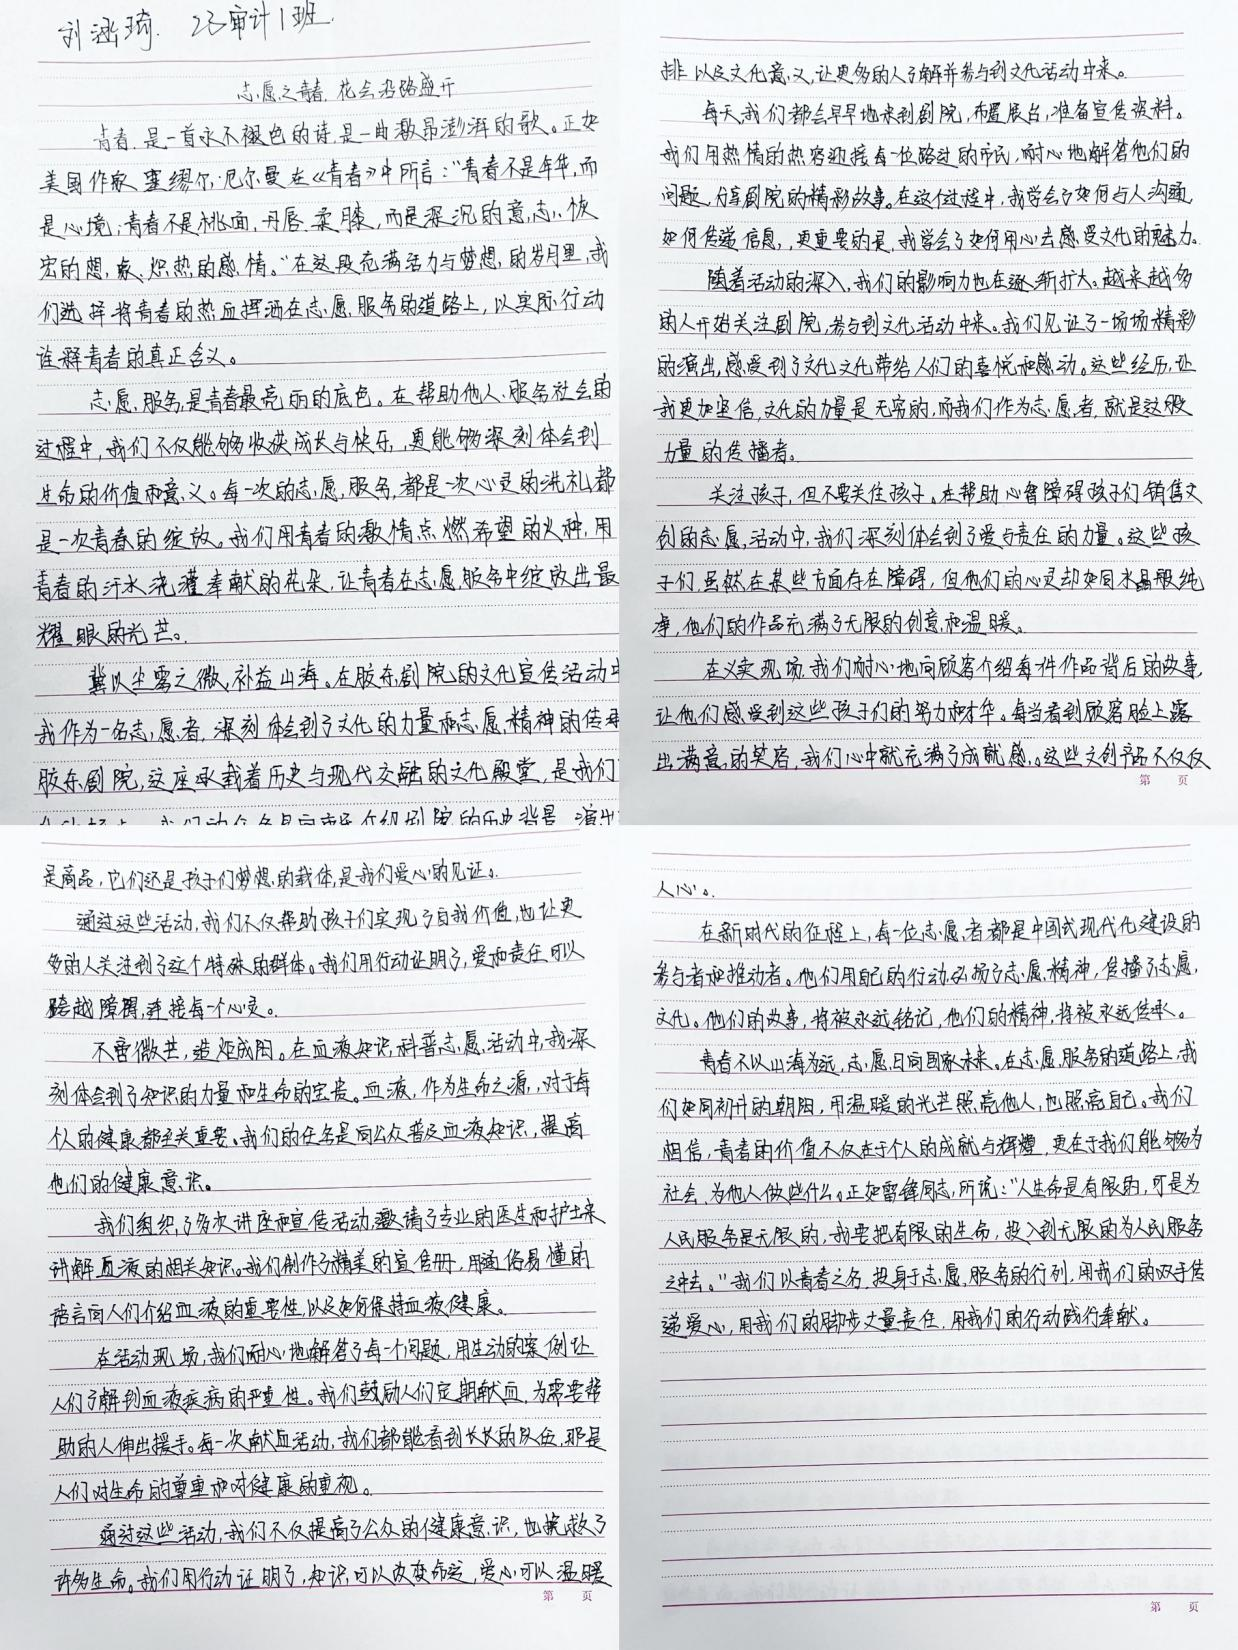 刘涵琦. 23审计1班.
志愿之青春,花会沿路盛开
青春,是一首永不褪色的诗,是一曲激昂澎湃的歌。正如
美国作家 塞缪尔·厄尔曼在《青春》中所言:“青春不是年华,而
是心境;青春不是桃面、丹唇、柔膝,而是深沉的意志、恢
宏的想象、炽热的感情。”在这段充满活力与梦想的岁月里,我
们选择将青春的热血挥洒在志愿服务的道路上,以实际行动
诠释青春的真正含义。
志愿服务,是青春最亮丽的底色。在帮助他人、服务社会的
过程中,我们不仅能够收获成长与快乐,更能够深刻体会到
生命的价值和意义。每一次的志愿服务,都是一次心灵的洗礼,都
是一次青春的绽放。我们用青春的激情点燃希望的火种,用
青春的汗水浇灌奉献的花朵,让青春在志愿服务中绽放出最
耀眼的光芒。
冀以尘雾之微,补益山海。在胶东剧院的文化宣传活动中
我作为一名志愿者,深刻体会到了文化的力量和志愿精神的传承
胶东剧院,这座承载着历史与现代交融的文化殿堂,是我们
我们的任务是向市民介绍剧院的历史背景、演出
排以及文化意义,让更多的人了解并参与到文化活动中来。
每天,我们都会早早地来到剧院,布置展台,准备宣传资料。
我们用热情的热容迎接每一位路过的市民,耐心地解答他们的
问题,分享剧院的精彩故事。在这个过程中,我学会了如何与人沟通,
如何传递信息,更重要的是,我学会了如何用心去感受文化的魅力。
随着活动的深入,我们的影响力也在逐渐扩大。越来越多
的人开始关注剧院,参与到文化活动中来。我们见证了一场场精彩
的演出,感受到了文化文化带给人们的喜悦和感动。这些经历,让
我更加坚信,文化的力量是无穷的,而我们作为志愿者,就是这股
力量的传播者。
关注孩子,但不要关住孩子。在帮助心智障碍孩子们销售文
创的志愿活动中,我们深刻体会到了爱与责任的力量。这些孩
子们,虽然在某些方面存在障碍,但他们的心灵却如同水晶般纯
净,他们的作品充满了无限的创意和温暖。
在义卖现场,我们耐心地向顾客介绍每件作品背后的故事,
让他们感受到这些孩子们的努力和才华。每当看到顾客脸上露
出满意的笑容,我们心中就充满了成就感。这些文创产品不仅仅
第 页
是商品,它们还是孩子们梦想的载体,是我们爱心的见证。
通过这些活动,我们不仅帮助孩子们实现了自我价值,也让更
多的人关注到了这个特殊的群体。我们用行动证明了,爱和责任可以
跨越障碍,连接每一个心灵。
不啻微芒,造炬成阳。在血液知识科普志愿活动中,我深
刻体会到了知识的力量和生命的宝贵。血液,作为生命之源,对于每
个人的健康都至关重要。我们的任务是向公众普及血液知识,提高
他们的健康意识。
我们组织了多次讲座和宣传活动,邀请了专业的医生和护士来
讲解血液的相关知识。我们制作了精美的宣传册,用通俗易懂的
语言向人们介绍血液的重要性,以及如何保持血液健康。
在活动现场,我们耐心地解答了每一个问题,用生动的案例让
人们了解到血液疾病的严重性。我们鼓励人们定期献血,为需要帮
助的人伸出援手。每一次献血活动,我们都能看到长长的队伍,那是
人们对生命的尊重和对健康的重视。
通过这些活动,我们不仅提高了公众的健康意识,也挽救了
许多生命。我们用行动证明了,知识可以改变命运,爱心可以温暖
第 页
人心。
在新时代的征程上,每一位志愿者都是中国式现代化建设的
参与者和推动者。他们用自己的行动弘扬了志愿精神,传播了志愿
文化。他们的故事,将被永远铭记,他们的精神,将被永远传承。
青春不以山海为远,志愿日向国家未来。在志愿服务的道路上,我
们如同初升的朝阳,用温暖的光芒照亮他人,也照亮自己。我们
相信,青春的价值不仅在于个人的成就与辉煌,更在于我们能够为
社会、为他人做些什么。正如雷锋同志所说:“人生命是有限的,可是为
人民服务是无限的,我要把有限的生命,投入到无限的为人民服务
之中去。”我们以青春之名,投身于志愿服务的行列,用我们的双手传
递爱心,用我们的脚步丈量责任,用我们的行动践行奉献。
第 页